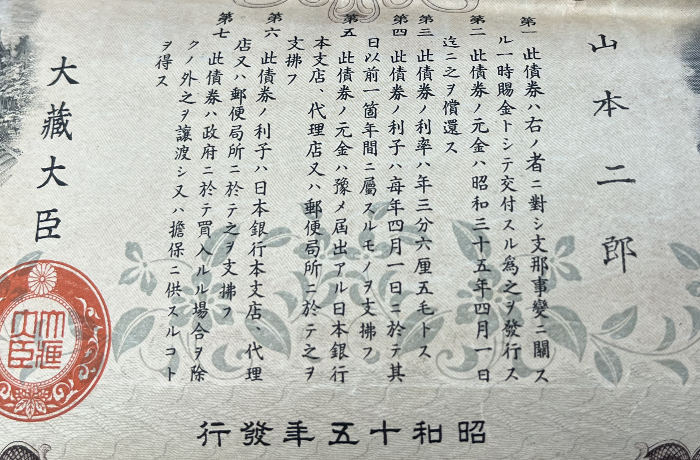 山本二郎
第一 此債券ハ右ノ者ニ對シ支那事變ニ關ス
ル一時賜金トシテ交付スル爲之ヲ發行ス
第二 此債券ノ元金ハ昭和三十五年四月一日
迄ニ之ヲ償還ス
第三 此債券ノ利率ハ年三分六厘五毛トス
第四 此債券ノ利子ハ毎年四月一日ニ於テ其
日以前一箇年間ニ屬スルモノヲ支拂フ
第五 此債券ノ元金ハ豫メ屆出アル日本銀行
本支店、代理店又ハ郵便局所ニ於テ之ヲ
支拂フ
第六 此債券ノ利子ハ日本銀行本支店、代理
店又ハ郵便局所ニ於テ之ヲ支拂フ
第七 此債券ハ政府ニ於テ買入ルル場合ヲ除
クノ外之ヲ讓渡シ又ハ擔保ニ供スルコト
ヲ得ス
大藏大臣
大藏大臣
行發年五十和昭